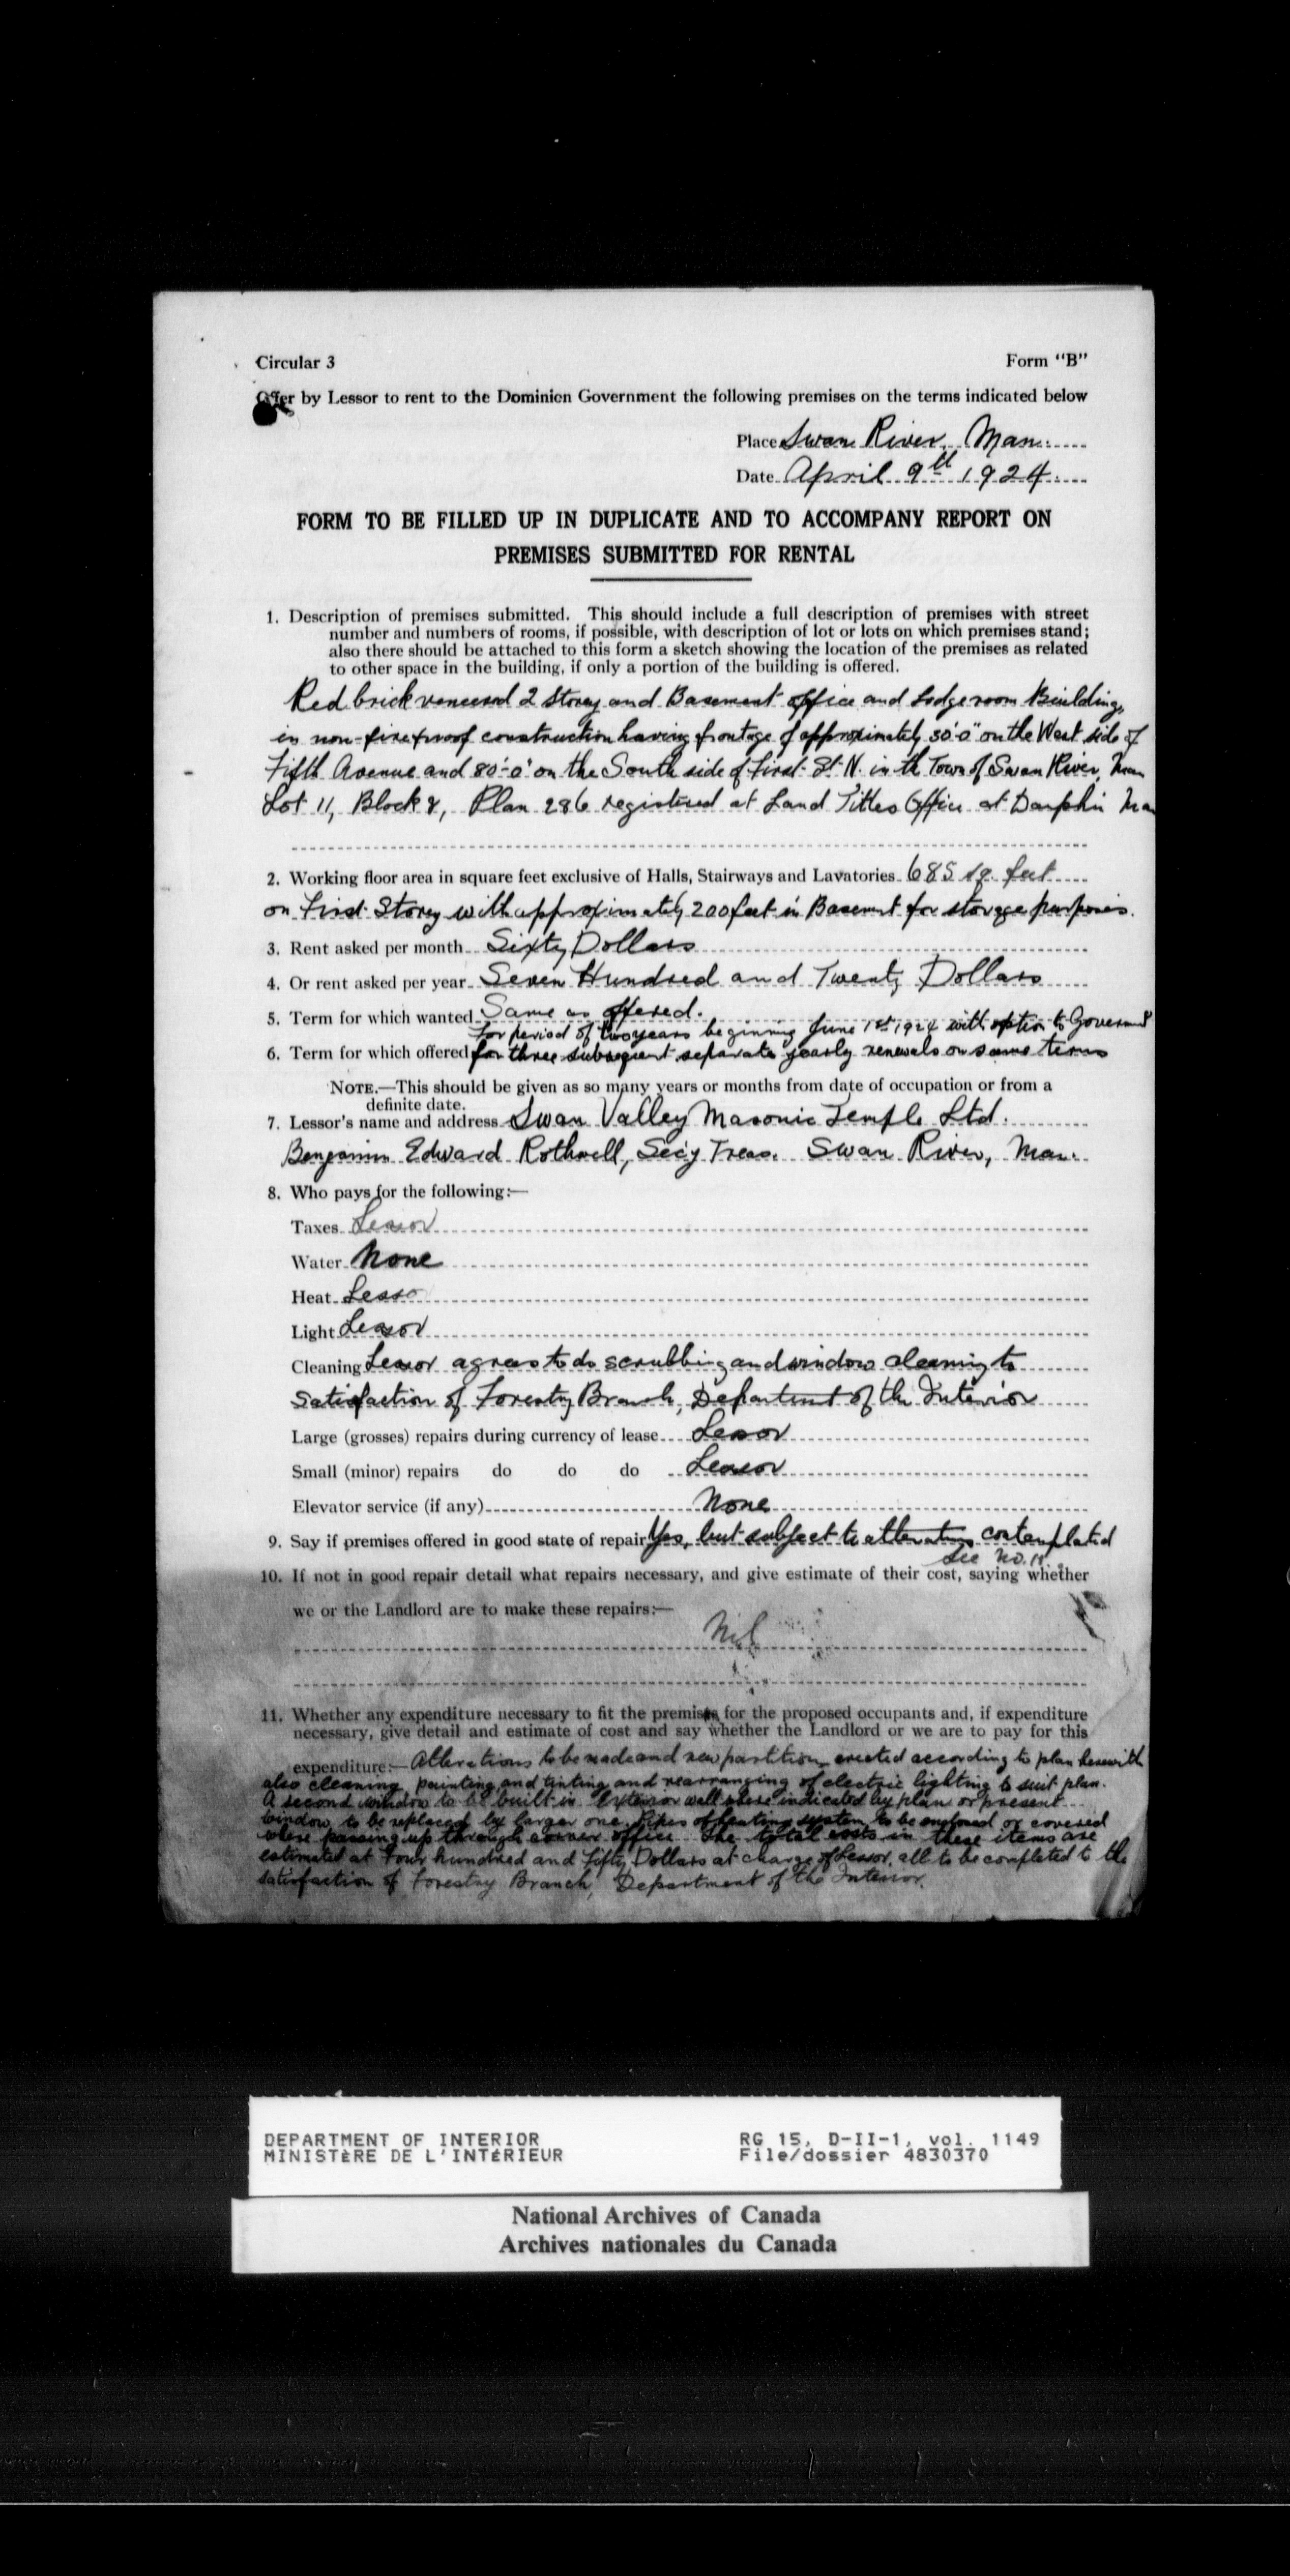 Circular 3 Form "B"
Offer by Lessor to rent to the Dominion Government the following premises on the terms indicated below
Place Swan River, Man.
Date April 9th 1924.
FORM TO BE FILLED UP IN DUPLICATE AND TO ACCOMPANY REPORT ON
PREMISES SUBMITTED FOR RENTAL
1. Description of premises submitted. This should include a full description of premises with street
number and numbers of rooms, if possible, with description of lot or lots on which premises stand;
also there should be attached to this form a sketch showing the location of the premises as related
to other space in the building, if only a portion of the building is offered.
Red brick veneered 2 Storey and Basement office and Lodge room Building,
in non-fireproof construction having frontage of approximately 30'-0" on the West side of
Fifth Avenue and 80'-0" on the South side of First St. N. in the Town of Swan River, Man
Lot 11, Block 8, Plan 286 registered at Land Titles Office at Dauphin Man
2. Working floor area in square feet exclusive of Halls, Stairways and Lavatories 685 sq. feet
on First Storey with approximately 200 feet in Basement for storage purposes.
3. Rent asked per month Sixty Dollars
4. Or rent asked per year Seven Hundred and Twenty Dollars
5. Term for which wanted Same as offered.
For period of two years beginning June 1st 1924 with option to Government
6. Term for which offered for three subsequent separate yearly renewals on same terms
NOTE.—This should be given as so many years or months from date of occupation or from a
definite date.
7. Lessor's name and address Swan Valley Masonic Temple Ltd.
Benjamin Edward Rothwell, Sec'y Treas. Swan River, Man.
8. Who pays for the following:—
Taxes Lessor
Water None
Heat Lesso
Light Lessor
Cleaning Lessor agrees to do scrubbing and window cleaning to
satisfaction of Forestry Branch, Department of the Interior
Large (grosses) repairs during currency of lease Lessor
Small (minor) repairs do do do Lessor
Elevator service (if any) None
9. Say if premises offered in good state of repair Yes, but subject to alteration contemplated
See No. 11
10. If not in good repair detail what repairs necessary, and give estimate of their cost, saying whether
we or the Landlord are to make these repairs:—
Nil
11. Whether any expenditure necessary to fit the premises for the proposed occupants and, if expenditure
necessary, give detail and estimate of cost and say whether the Landlord or we are to pay for this
expenditure:— Alterations to be made and new partition erected according to plan herewith
also cleaning, painting, and tinting and rearranging of electric lighting to suit plan.
A second window to be built in exterior wall where indicated by plan or present
window to be replaced by larger one. Pipes of heating system to be enclosed or covered
where passing up through corner office. The total costs in these items are
estimated at Four hundred and fifty Dollars at charge of Lessor, all to be completed to the
satisfaction of Forestry Branch, Department of the Interior.
DEPARTMENT OF INTERIOR RG 15, D-II-1, vol. 1149
MINISTÈRE DE L'INTÉRIEUR File/dossier 4830370
National Archives of Canada
Archives nationales du Canada